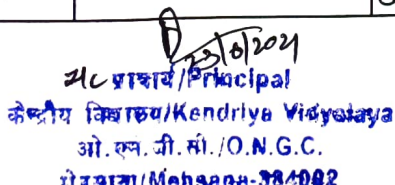 23/8/2021
I/c प्राचार्य/Principal
केन्द्रीय विद्यालय/Kendriya Vidyalaya
ओ. एन. जी. सी./O.N.G.C.
मेहसाना/Mehsana-384002